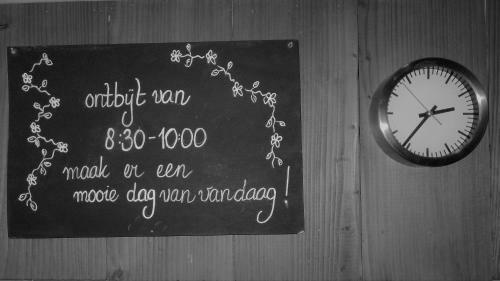 ontbijt van
8:30-10:00
maak er een
mooie dag van vandaag!